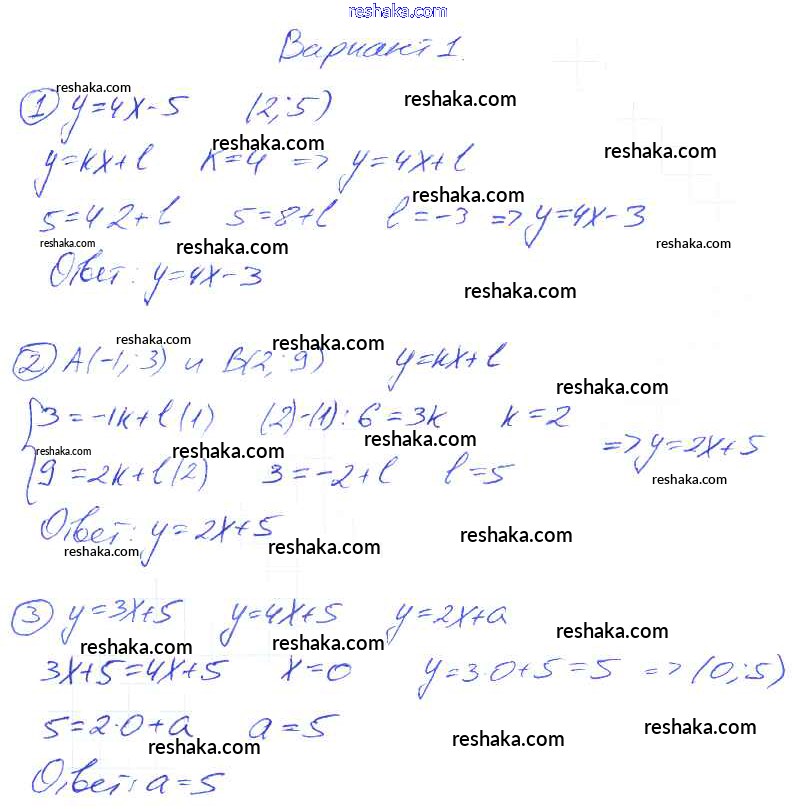 reshaka.com
Вариант 1.
reshaka.com reshaka.com
① y=4x-5 (2;5)
reshaka.com reshaka.com
y=kx+l k=4 => y=4x+l
reshaka.com
5=4·2+l 5=8+l l=-3 => y=4x-3
reshaka.com reshaka.com reshaka.com
Ответ: y=4x-3
reshaka.com
reshaka.com reshaka.com
② A(-1;3) и B(2;9) y=kx+l
reshaka.com
{3=-1k+l (1) (2)-(1): 6=3k k=2
reshaka.com reshaka.com reshaka.com => y=2x+5
9=2k+l (2) 3=-2+l l=5 reshaka.com
Ответ: y=2x+5
reshaka.com reshaka.com reshaka.com
③ y=3x+5 y=4x+5 y=2x+a
reshaka.com reshaka.com reshaka.com
3x+5=4x+5 x=0 y=3·0+5=5 => (0;5)
5=2·0+a a=5
reshaka.com reshaka.com reshaka.com
Ответ: a=5